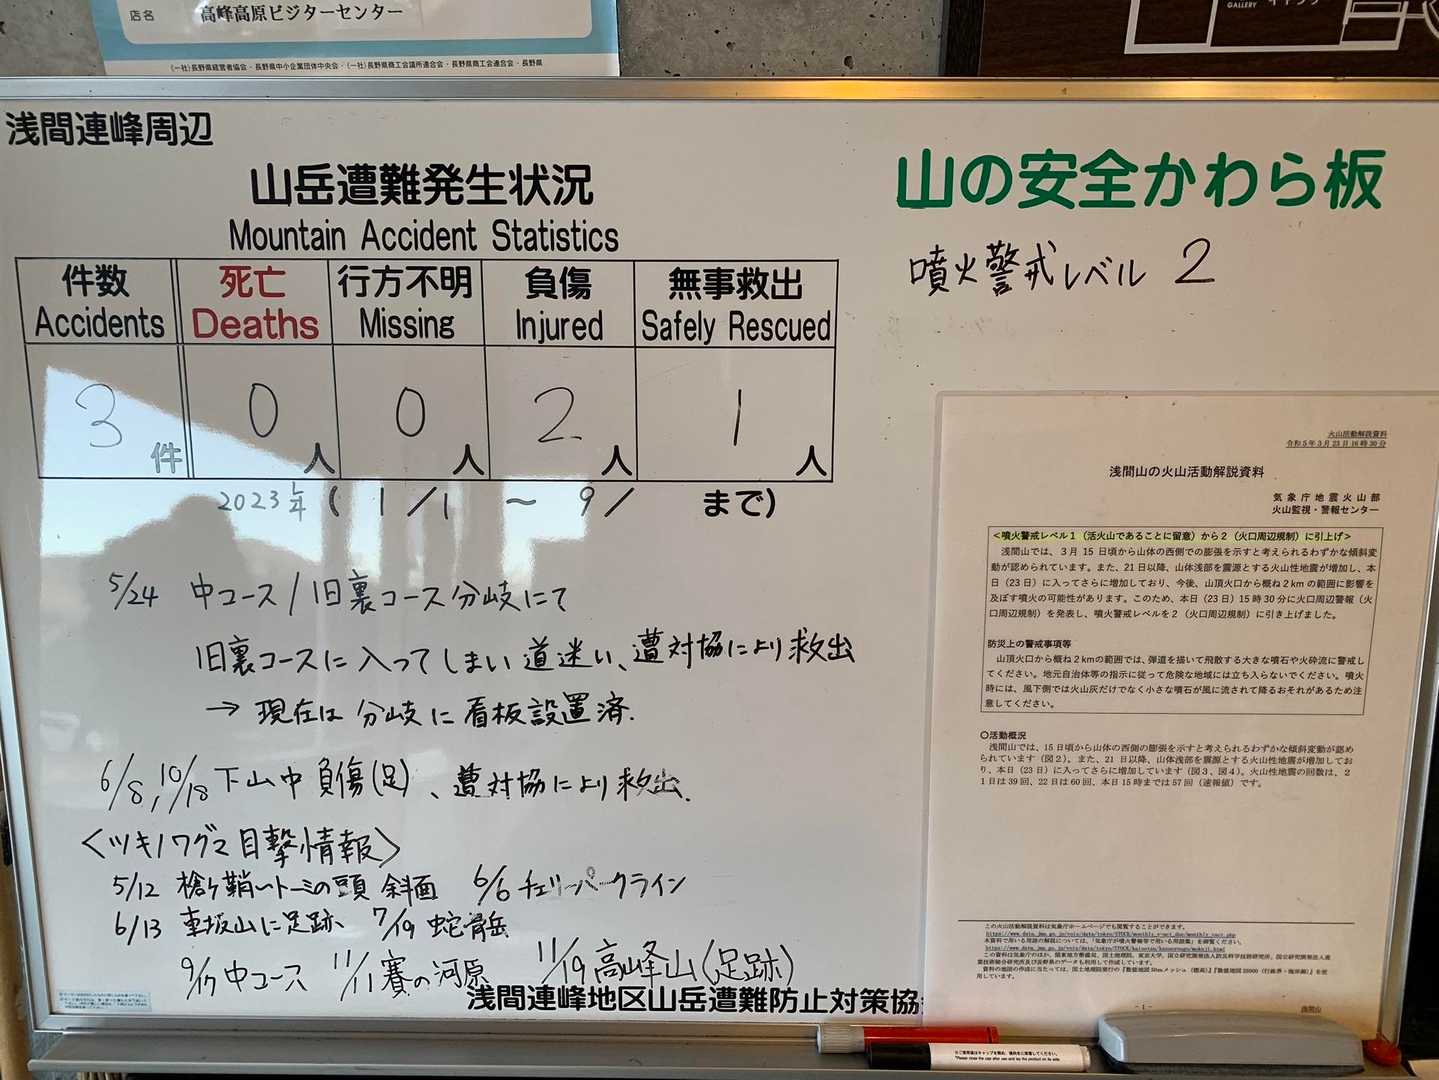 店名 高峰高原ビジターセンター
(一社)長野県経営者協会・長野県中小企業団体中央会・(一社)長野県商工会議所連合会・長野県商工会連合会・長野県
GALLERY
浅間連峰周辺
山岳遭難発生状況
Mountain Accident Statistics
件数 死亡 行方不明 負傷 無事救出
Accidents Deaths Missing Injured Safely Rescued
3件 0人 0人 2人 1人
2023年 ( 1/1 ~ 9/ まで)
5/24 中コース/旧裏コース分岐にて
旧裏コースに入ってしまい道迷い、遭対協により救出
→ 現在は分岐に看板設置済.
6/8, 10/18 下山中負傷(足)、遭対協により救出.
<ツキノワグマ目撃情報>
5/12 槍ヶ鞘~トーミの頭 斜面 6/6 チェリーパークライン
6/13 車坂山に足跡、 7/19 蛇骨岳
9/17 中コース 11/11 賽の河原 11/19 高峰山(足跡)
浅間連峰地区山岳遭難防止対策協
山の安全かわら板
噴火警戒レベル 2
火山活動解説資料
令和5年3月23日16時30分
浅間山の火山活動解説資料
気象庁地震火山部
火山監視・警報センター
<噴火警戒レベル1(活火山であることに留意)から2(火口周辺規制)に引上げ>
浅間山では、3月15日頃から山体の西側での膨張を示すと考えられるわずかな傾斜変
動が認められています。また、21日以降、山体浅部を震源とする火山性地震が増加し、本
日(23日)に入ってさらに増加しており、今後、山頂火口から概ね2kmの範囲に影響を
及ぼす噴火の可能性があります。このため、本日(23日)15時30分に火口周辺警報(火
口周辺規制)を発表し、噴火警戒レベルを2(火口周辺規制)に引き上げました。
防災上の警戒事項等
山頂火口から概ね2kmの範囲では、弾道を描いて飛散する大きな噴石や火砕流に警戒し
てください。地元自治体等の指示に従って危険な地域には立ち入らないでください。噴火
時には、風下側では火山灰だけでなく小さな噴石が風に流されて降るおそれがあるため注
意してください。
○活動概況
浅間山では、15日頃から山体の西側の膨張を示すと考えられるわずかな傾斜変動が認め
られています(図2)。また、21日以降、山体浅部を震源とする火山性地震が増加してお
り、本日(23日)に入ってさらに増加しています(図3、図4)。火山性地震の回数は、2
1日は39回、22日は60回、本日15時までは57回(速報値)です。
この火山活動解説資料は気象庁ホームページでも閲覧することができます。
本資料で用いる用語の解説については、「気象庁が噴火警報等で用いる用語集」を御覧ください。
- 1 -
浅間山